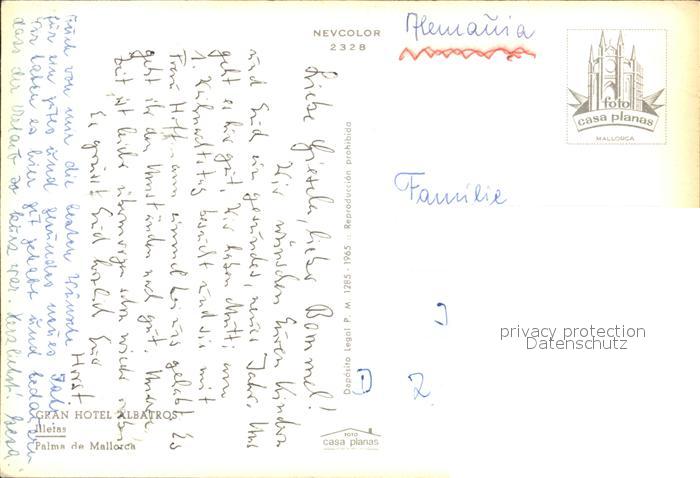 NEVCOLOR
2328
Alemania
foto
casa planas
MALLORCA
Familie
privacy protection
Datenschutz
Depósito Legal P. M. 1285 - 1965 :: Reproducción prohibida
foto
casa planas
GRAN HOTEL ALBATROS
Illetas
Palma de Mallorca
Liebe Gisela, lieber Bommel!
Wir wünschen Euren Kindern
und Euch ein gesundes, neues Jahr. Uns
geht es hier gut. Wir haben Mutti am
1. Weihnachtstag besucht und sie mit
Frau Hoffmann einmal bei uns gehabt. Es
geht ihr den Umständen nach gut. Unsere
Zeit ist leider übermorgen schon wieder
Es grüsst Euch herzlich Euer
Horst
Auch von mir die besten Wünsche
für ein gutes und gesundes neues Jahr.
Wir haben es hier gut gehabt und bedauern
dass der Urlaub so kurz war. Herzlichst